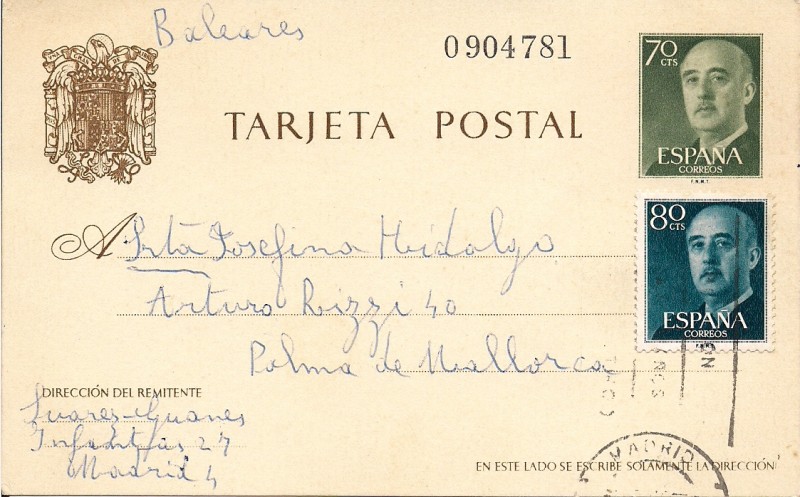 Baleares
0904781
70 CTS
ESPAÑA
CORREOS
F.N.M.T.
TARJETA POSTAL
80 CTS
ESPAÑA
CORREOS
F.N.M.T.
A Srtā Josefina Hidalgo
Arturo Rizzi 40
Palma de Mallorca
DIRECCIÓN DEL REMITENTE
Suares-Guanes
Infantas 27
Madrid 4
MADRID
EN ESTE LADO SE ESCRIBE SOLAMENTE LA DIRECCIÓN